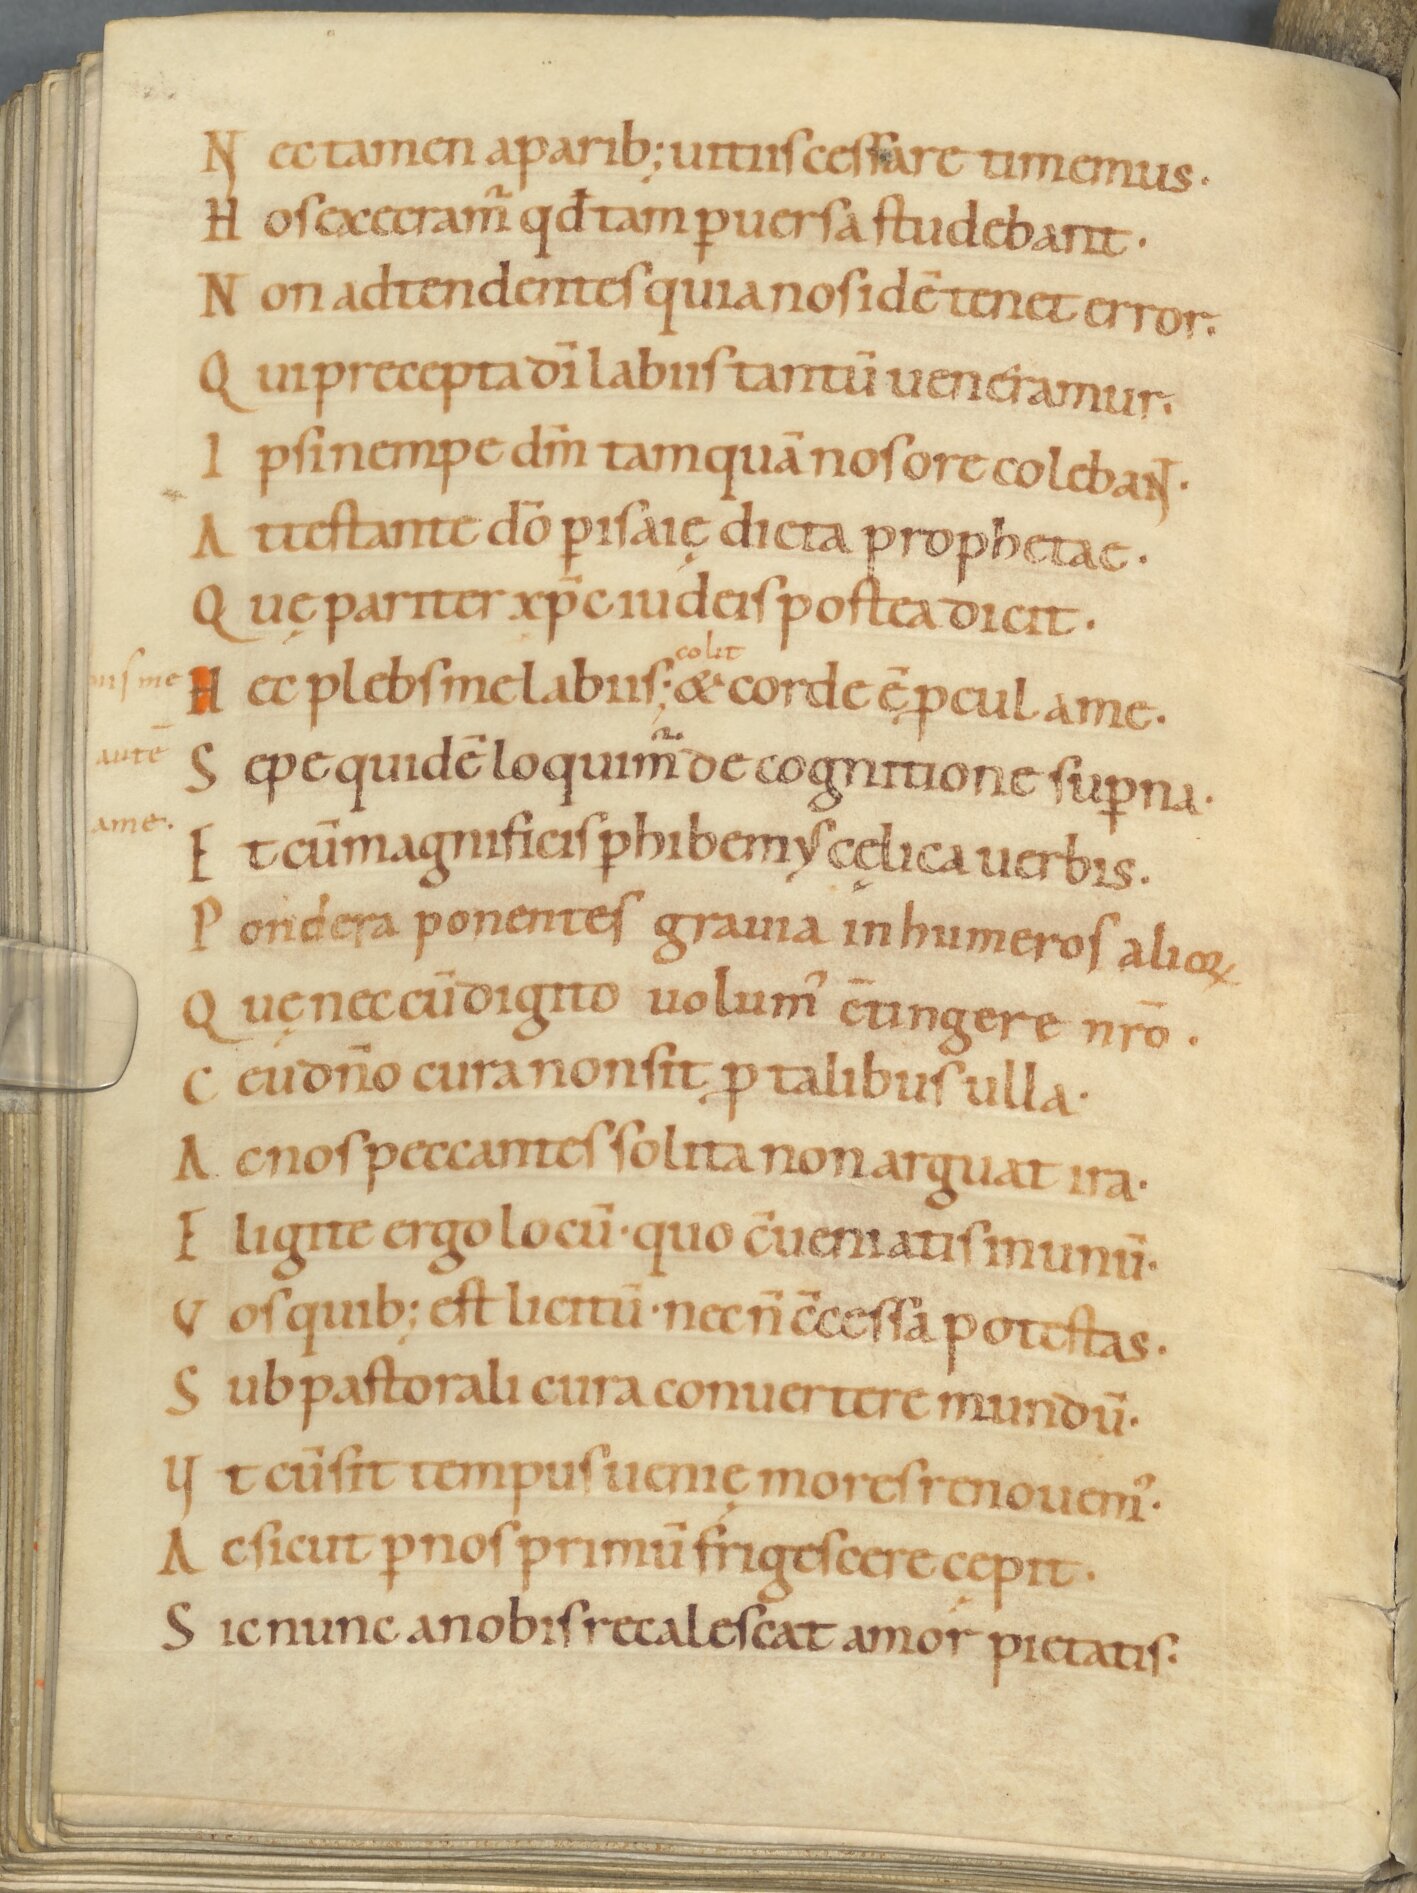 Nec tamen a parib; uitiis cessare timemus.
Hos execram̃ qđ tam ꝑuersa studebant.
Non adtendentes quia nos idē tenet error.
Qui precepta dī labiis tantū ueneramur.
Ipsi nempe dm̄ tamquā nos ore colebant.
Attestante dō ꝑ isaię dicta prophetae.
Quę pariter xp̄c iudeis postea dicit.
colit
me Hec plebs me labiis; & corde ē ꝓcul a me.
autē Sepe quidē loquim̃ de cognitione suꝑna.
a me. Et cū magnificis ꝑhibemus cęlica uerbis.
Pondera ponentes grauia in humeros alioꝝ
Quę nec cū digito uolum᾿ c̄tingere nr̄o.
Ceu dn̄o cura non sit ꝓ talibus ulla.
Ac nos peccantes solita non arguat ira.
Eligite ergo locū. quo c̄ueniatis in unū.
Vos quib; est licitū. nec n̄ c̄cessa potestas.
Sub pastorali cura conuertere mundū.
Vt cū sit tempus uenię mores renouem᾿.
Ac sicut ꝑ nos primū frigescere cępit.
Sic nunc a nobis recalescat amor pietatis.